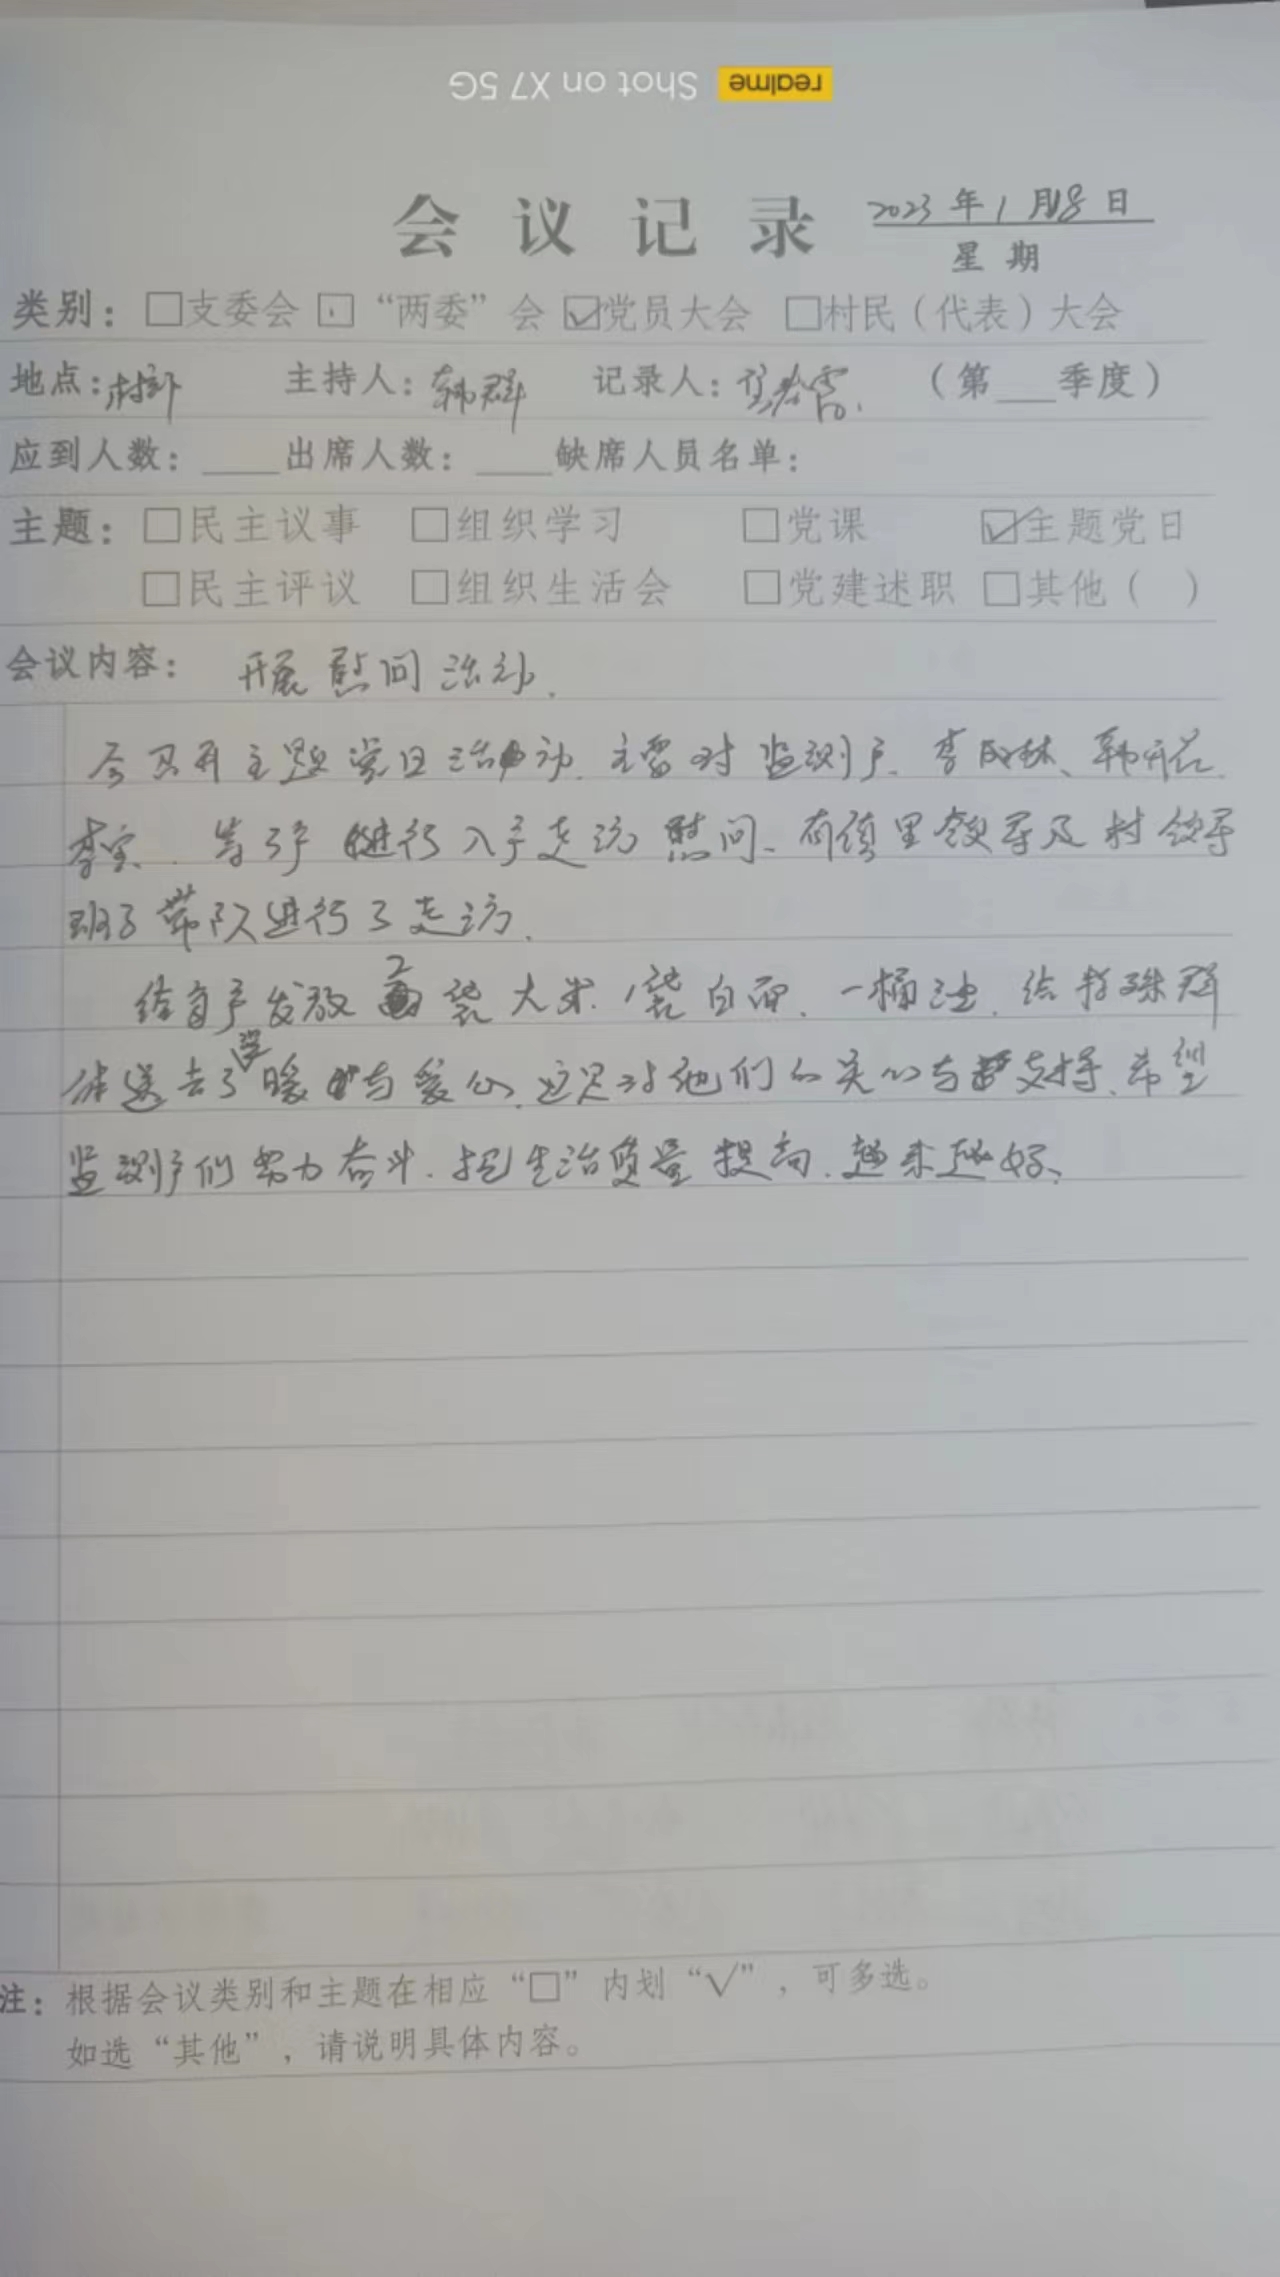 realme Shot on X7 5G
会议记录 2023年1月18日
星期
类别：□支委会 □“两委”会 ☑党员大会 □村民（代表）大会
地点：村部 主持人：韩群 记录人： （第___季度）
应到人数：____出席人数：____缺席人员名单：
主题：□民主议事 □组织学习 □党课 ☑主题党日
□民主评议 □组织生活会 □党建述职 □其他（ ）
会议内容： 开展慰问活动.
今召开主题党日活动.主要对监测户.李成林、韩
李宝..等3户进行入户走访慰问.有镇里领导及村领导
班子带队进行了走访.
给每户发放2袋大米.1袋白面.一桶油.给特殊群
体送去了温暖与爱心.这是对他们的关心与支持.希望
监测户们努力奋斗.把生活质量提高.越来越好.
注：根据会议类别和主题在相应“□”内划“√”，可多选。
如选“其他”，请说明具体内容。